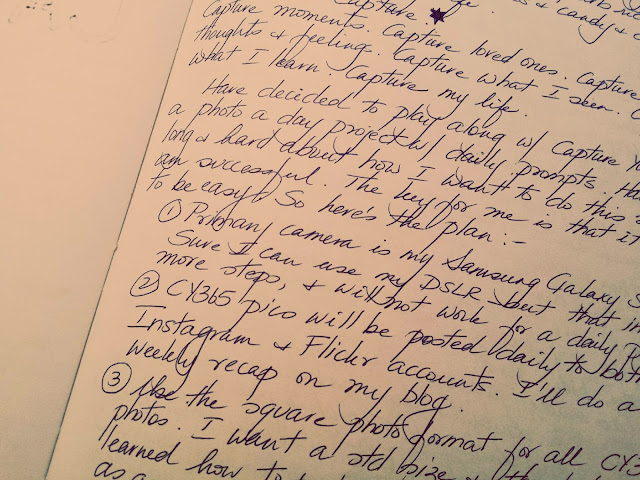 Capture life.
& candy &
Capture moments. Capture loved ones. Capture
thoughts & feelings. Capture what I seen.
what I learn. Capture my life.
Have decided to play along w/ Capture
a photo a day project w/ daily prompts.
long & hard about how I want to do this
am successful. The key for me is that it
to be easy. So here's the plan:-
① Primary camera is my Samsung Galaxy
Sure I can use my DSLR but that is
more steps, & will not work for a daily
② CY365 pics will be posted daily to both
Instagram & Flickr accounts. I'll do a
weekly recap on my blog.
③ Use the square photo format for all CY3
photos. I want a std size
learned how to
as a